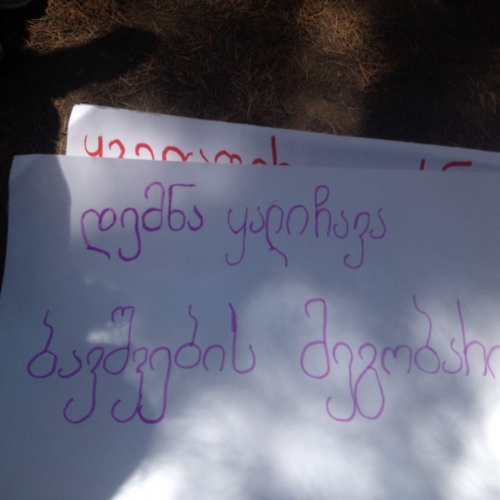 დემნა ყალიჩავა
ბავშვების მეგობარი